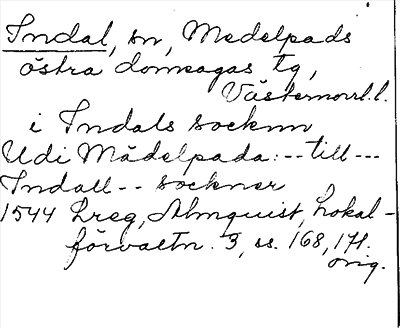 Indal, sn, Medelpads
östra domsagas tg,
Västernorrl.l.
i Indals socknn
Udi Mädelpada:--till---
Indall-- sockner
1544 Lreg, Almquist, Lokal-
förvaltn. 3, ss. 168, 171.
orig.